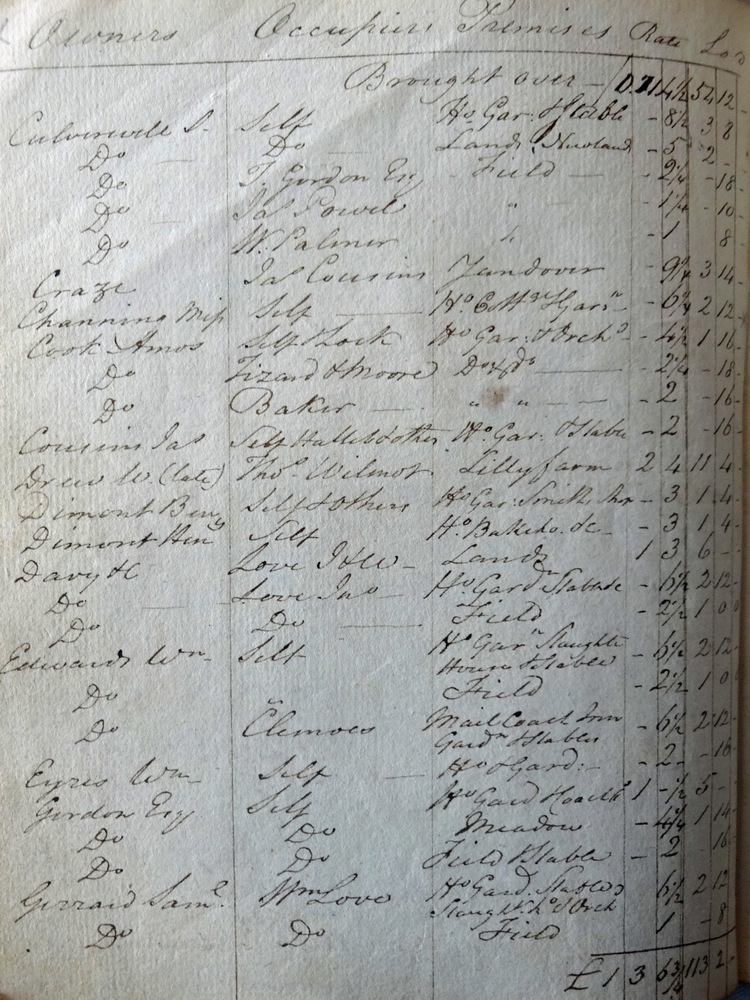 Owners Occupiers Premises Rate
Brought over - 12
Culverwell S. Self Ho Gar: & Stable - 8½ 3 8
Do Do Land, Newland - 5 2 -
Do T. Gordon Esq Field - 2¼ - 18
Do Jas Powel " - 1¼ - 10
Do W. Palmer " - 1 8
Craze Jas Cousins - 9¼ 3 14
Channing Miss Self Ho Garn - 6¼ 2 12
Cook Amos Self & Lock Ho Gar: & Orchd - 4½ 1 16
Do Lizard & Moore Do & do - 2¼ - 18
Do Baker " " - 2 - 16
Cousins Jas Self Hallett & other Ho Gar: & Stable - 2 - 16
Drew W. (late) Thos Wilmot Lillyfarm 2 4 11 4
Dimont Benj Self & others Ho Gar: Smith Shop - 3 1 4
Dimont Heny Self Ho Bakeho. &c - 3 1 4
Davy H Love J & W - Land 1 3 6 -
Do Love Jno Ho Gardn Stable - 6½ 2 12
Do Do Field - 2½ 1 0
Edwards Wm Self Ho Garn Slaughter - 6½ 2 12
House & Stable
Do Field - 2½ 1 0
Do Clemoes Mail Coach Inn - 6½ 2 12
Gardn & Stables
Eyres Wm Self Ho & Gard: - 2 - 16
Gordon Esq Self Ho Gard Coachho 1 - ½ 5 -
Do Do Meadow - 4¼ 1 14
Do Do Field & Stable - 2 - 16
Gerraid Saml Wm Love Ho Gard. Stables 6½ 2 12
Slaughr. ho & Orch
Do Do Field 1 - 8
£ 1 3 6¾ 113 2 -